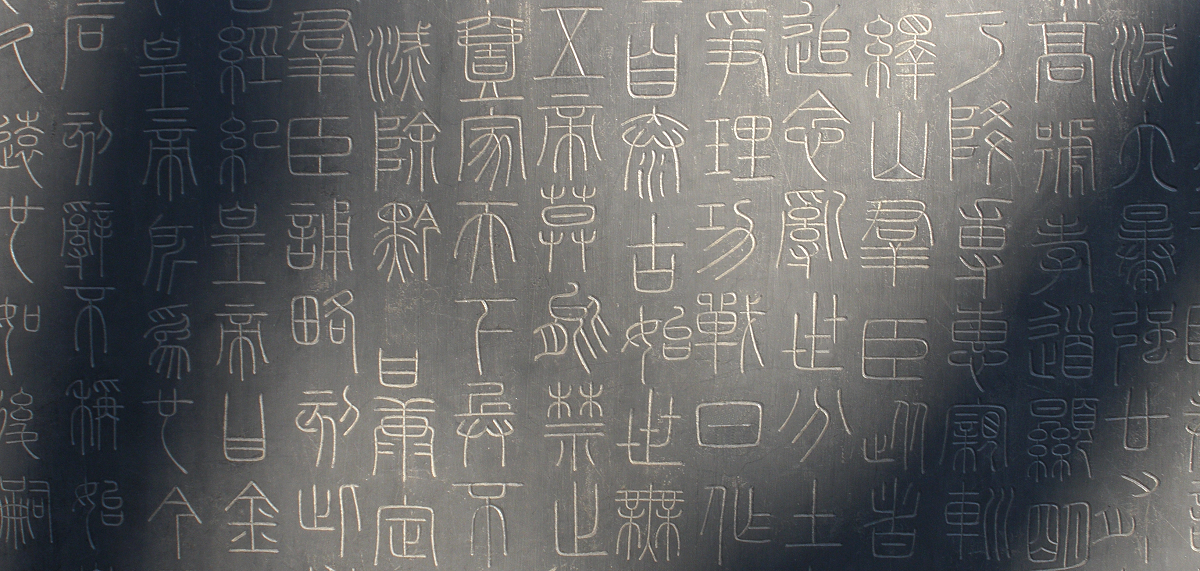 滅六暴強廿有
高號孝道顯明
乃降專惠親巡
繹山群臣從者
追念亂世分土
爭理功戰日作
自泰古始世無
五帝莫能禁止
壹家天下兵不
滅除黔首康定
群臣誦略刻此
經紀皇帝曰金
皇帝所為也今
石刻辭不稱始
久遠也如後嗣